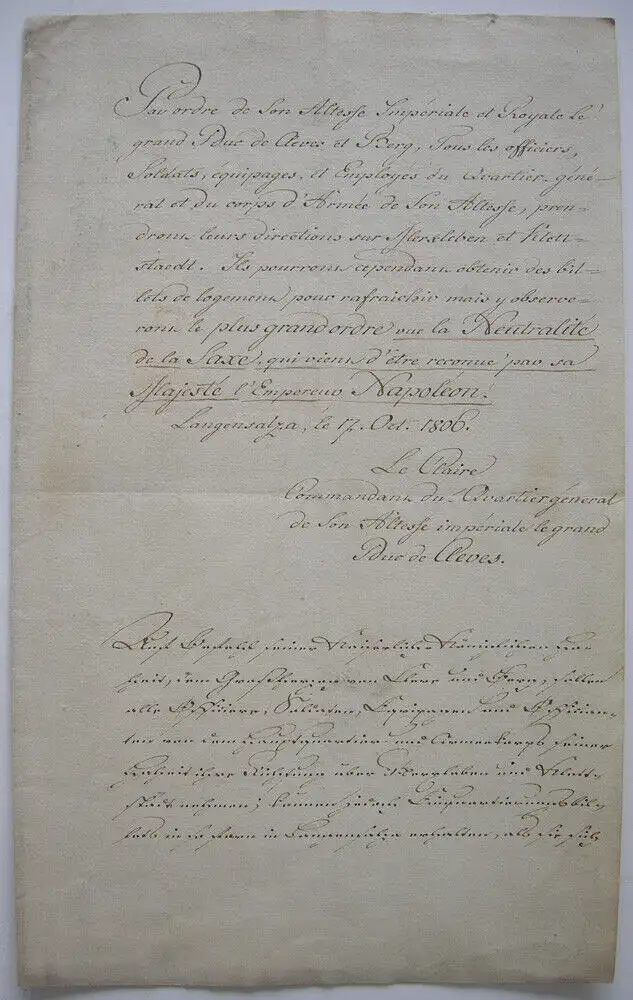 Par ordre de Son Altesse Impériale et Royale le
grand Duc de Cleves et Berg, Tous les officiers,
Soldats, équipages, et Employés du Quartier-géné-
ral et du corps d'Armée de Son Altesse, pren-
dront leurs directions sur Merxleben et Klett-
staedt. Ils pourront cependant obtenir des bil-
lets de logement pour rafraichir mais y observe-
ront le plus grand ordre vue la Neutralité
de la Saxe, qui vient d'être reconue par sa
Majesté l'Empereur Napoléon.
Langensalza, le 17. Oct. 1806.
Le Claire
Commandant du Quartier général
de Son Altesse impériale le grand
Duc de Cleves.
Auf Befehl seiner Kaiserlich Königlichen Ho-
heit, dem Grosherzog von Cleve und Berg, sollen
alle Officiere, Soldaten, Equipagen und Offician-
ten von dem Hauptquartier und Armeekorps seiner
Hoheit ihre Richtung über Merxleben und Klett-
städt nehmen; können jedoch Einquartierungsbil-
lets in Langensalza erhalten, als sie sich